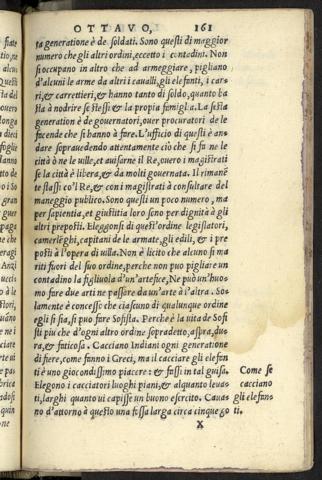 OTTAVO, 161
ta generatione è de soldati. Sono questi di maggior
numero che gli altri ordini, eccetto i contadini. Non
si occupano in altro che ad armeggiare, pigliano
d'alcuni le arme da altri i caualli, gli elefanti, i car-
ri, & carrettieri, & hanno tanto di soldo, quanto ba
sta à nodrire se stessi & la propia famiglia. La sesta
generation è de gouernatori, ouer procuratori de le
facende che si hanno à fare. L'ufficio di questi è an-
dare soprauedendo attentamente ciò che si fa ne le
città ò ne le uille, et auisarne il Re, ouero i magistrati
se la città è libera, & da molti gouernata. Il rimanẽ
te stassi co'l Re, & con i magistrati à consultare del
maneggio publico. Sono questi un poco numero, ma
per sapientia, et giustitia loro sono per dignità à gli
altri preposti. Eleggonsi di quest'ordine legislatori,
camerlẽghi, capitani de le armate, gli edili, & i pre
posti à l'opera di uilla. Non è licito che alcuno si ma
riti fuori del suo ordine, perche non puo pigliare un
contadino la figliuola d'un'artefice, Ne può un'huo-
mo fare due arti ne passare da un'arte à l'altra. So-
lamente è concesso che ciascuno di qualunque ordine
egli si sia, si può fare Sofista. Perche è la uita de Sofi
sti piu che d'ogni altro ordine sopradetto, aspra, du-
ra, & faticosa. Cacciano Indiani ogni generatione
di fiere, come fanno i Greci, ma il cacciare gli elefan
ti è uno giocondissimo piacere: & fassi in tal guisa.
Elegono i cacciatori luoghi piani, & alquanto leua-
ti, larghi quanto ui capisse un buono esercito. Caua-
no d'attorno à questo una fossa larga circa cinque 60
X
Come se
cacciano
gli elefan-
ti.